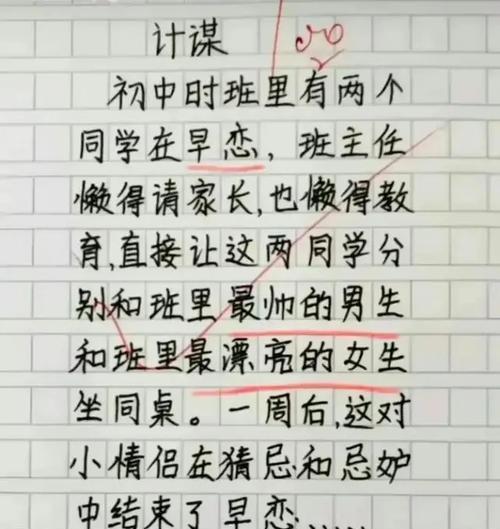 计谋
初中时班里有两个
同学在早恋，班主任
懒得请家长,也懒得教
育,直接让这两同学分
别和班里最帅的男生
和班里最漂亮的女生
坐同桌。一周后,这对
小情侣在猜忌和忌妒
中结束了早恋......